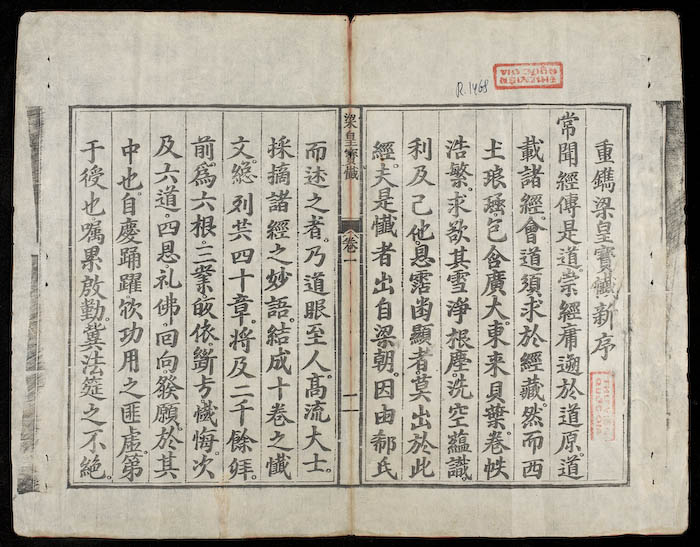 R.1468
THU VIEN
QUOC GIA
重鐫梁皇寶懺新序
常聞經傳是道。崇經庸遡於道原。道
載諸經會道須求於經藏。然而西
土琅。包含廣大。東來貝葉。卷帙
浩繁。求欲其雪淨根塵。洗空蘊識。
利及己他。恩霑幽顯者莫出於此
經。夫是懺者出自梁朝。因由郗氏
梁皇寶懺
卷一
一
而述之者。乃道眼至人高流大士。
採摘諸經之妙語。結成十卷之懺
文。總列共四十章。將及二千餘拜。
前。爲六根。三業皈依。斷懺悔。次
及六道。四恩礼佛。回向發願。於其
中也。自慶踊躍欣功用之匪虛。第
于後也。囑累啟勤。冀法筵之不絕。
THU VIEN
QUOC GIA